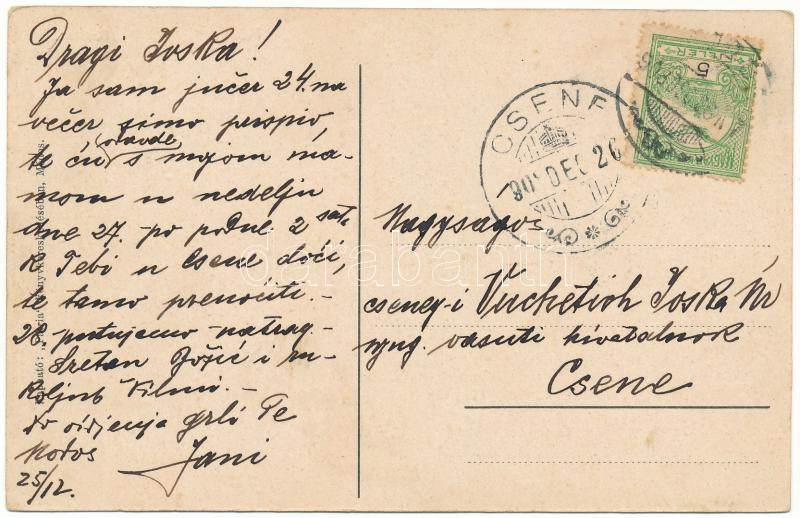 Dragi Joska!
Ja sam jučer 24. na
večer simo prispio
ovavde
te ću s mojom ma-
mom u nedelju
dne 27. po podne 2 sat.
k Tebi u Csene doći,
te tamo prenoćiti. -
28 putujemo natrag -
Sretan Božić i ru-
koljub Vilmi. -
Do vidjenja grli Te
Modos Jani
25/12.
CSENE
908 DEC 26
5
FILLÉR
Nagyságos
cseney-i Vuchetich Joska Úr
nyug. vasuti hivatalnok
Csene
darabanth